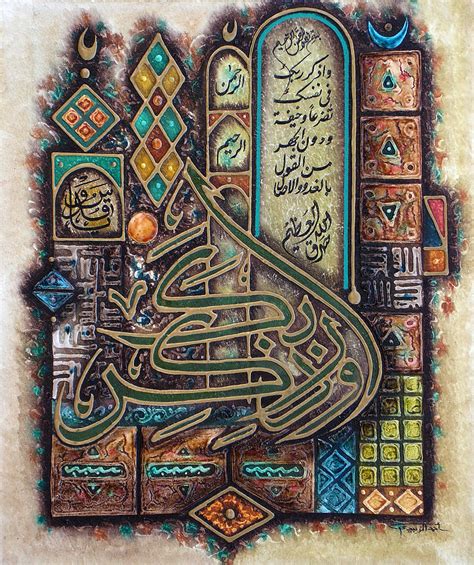 بسم الله الرحمن الرحيم
واذكر ربك
في نفسك
تضرعا وخيفة
ودون الجهر
من القول
بالغدو والاصال
صدق الله العظيم
الرحمن
الرحيم
واذكر ربك